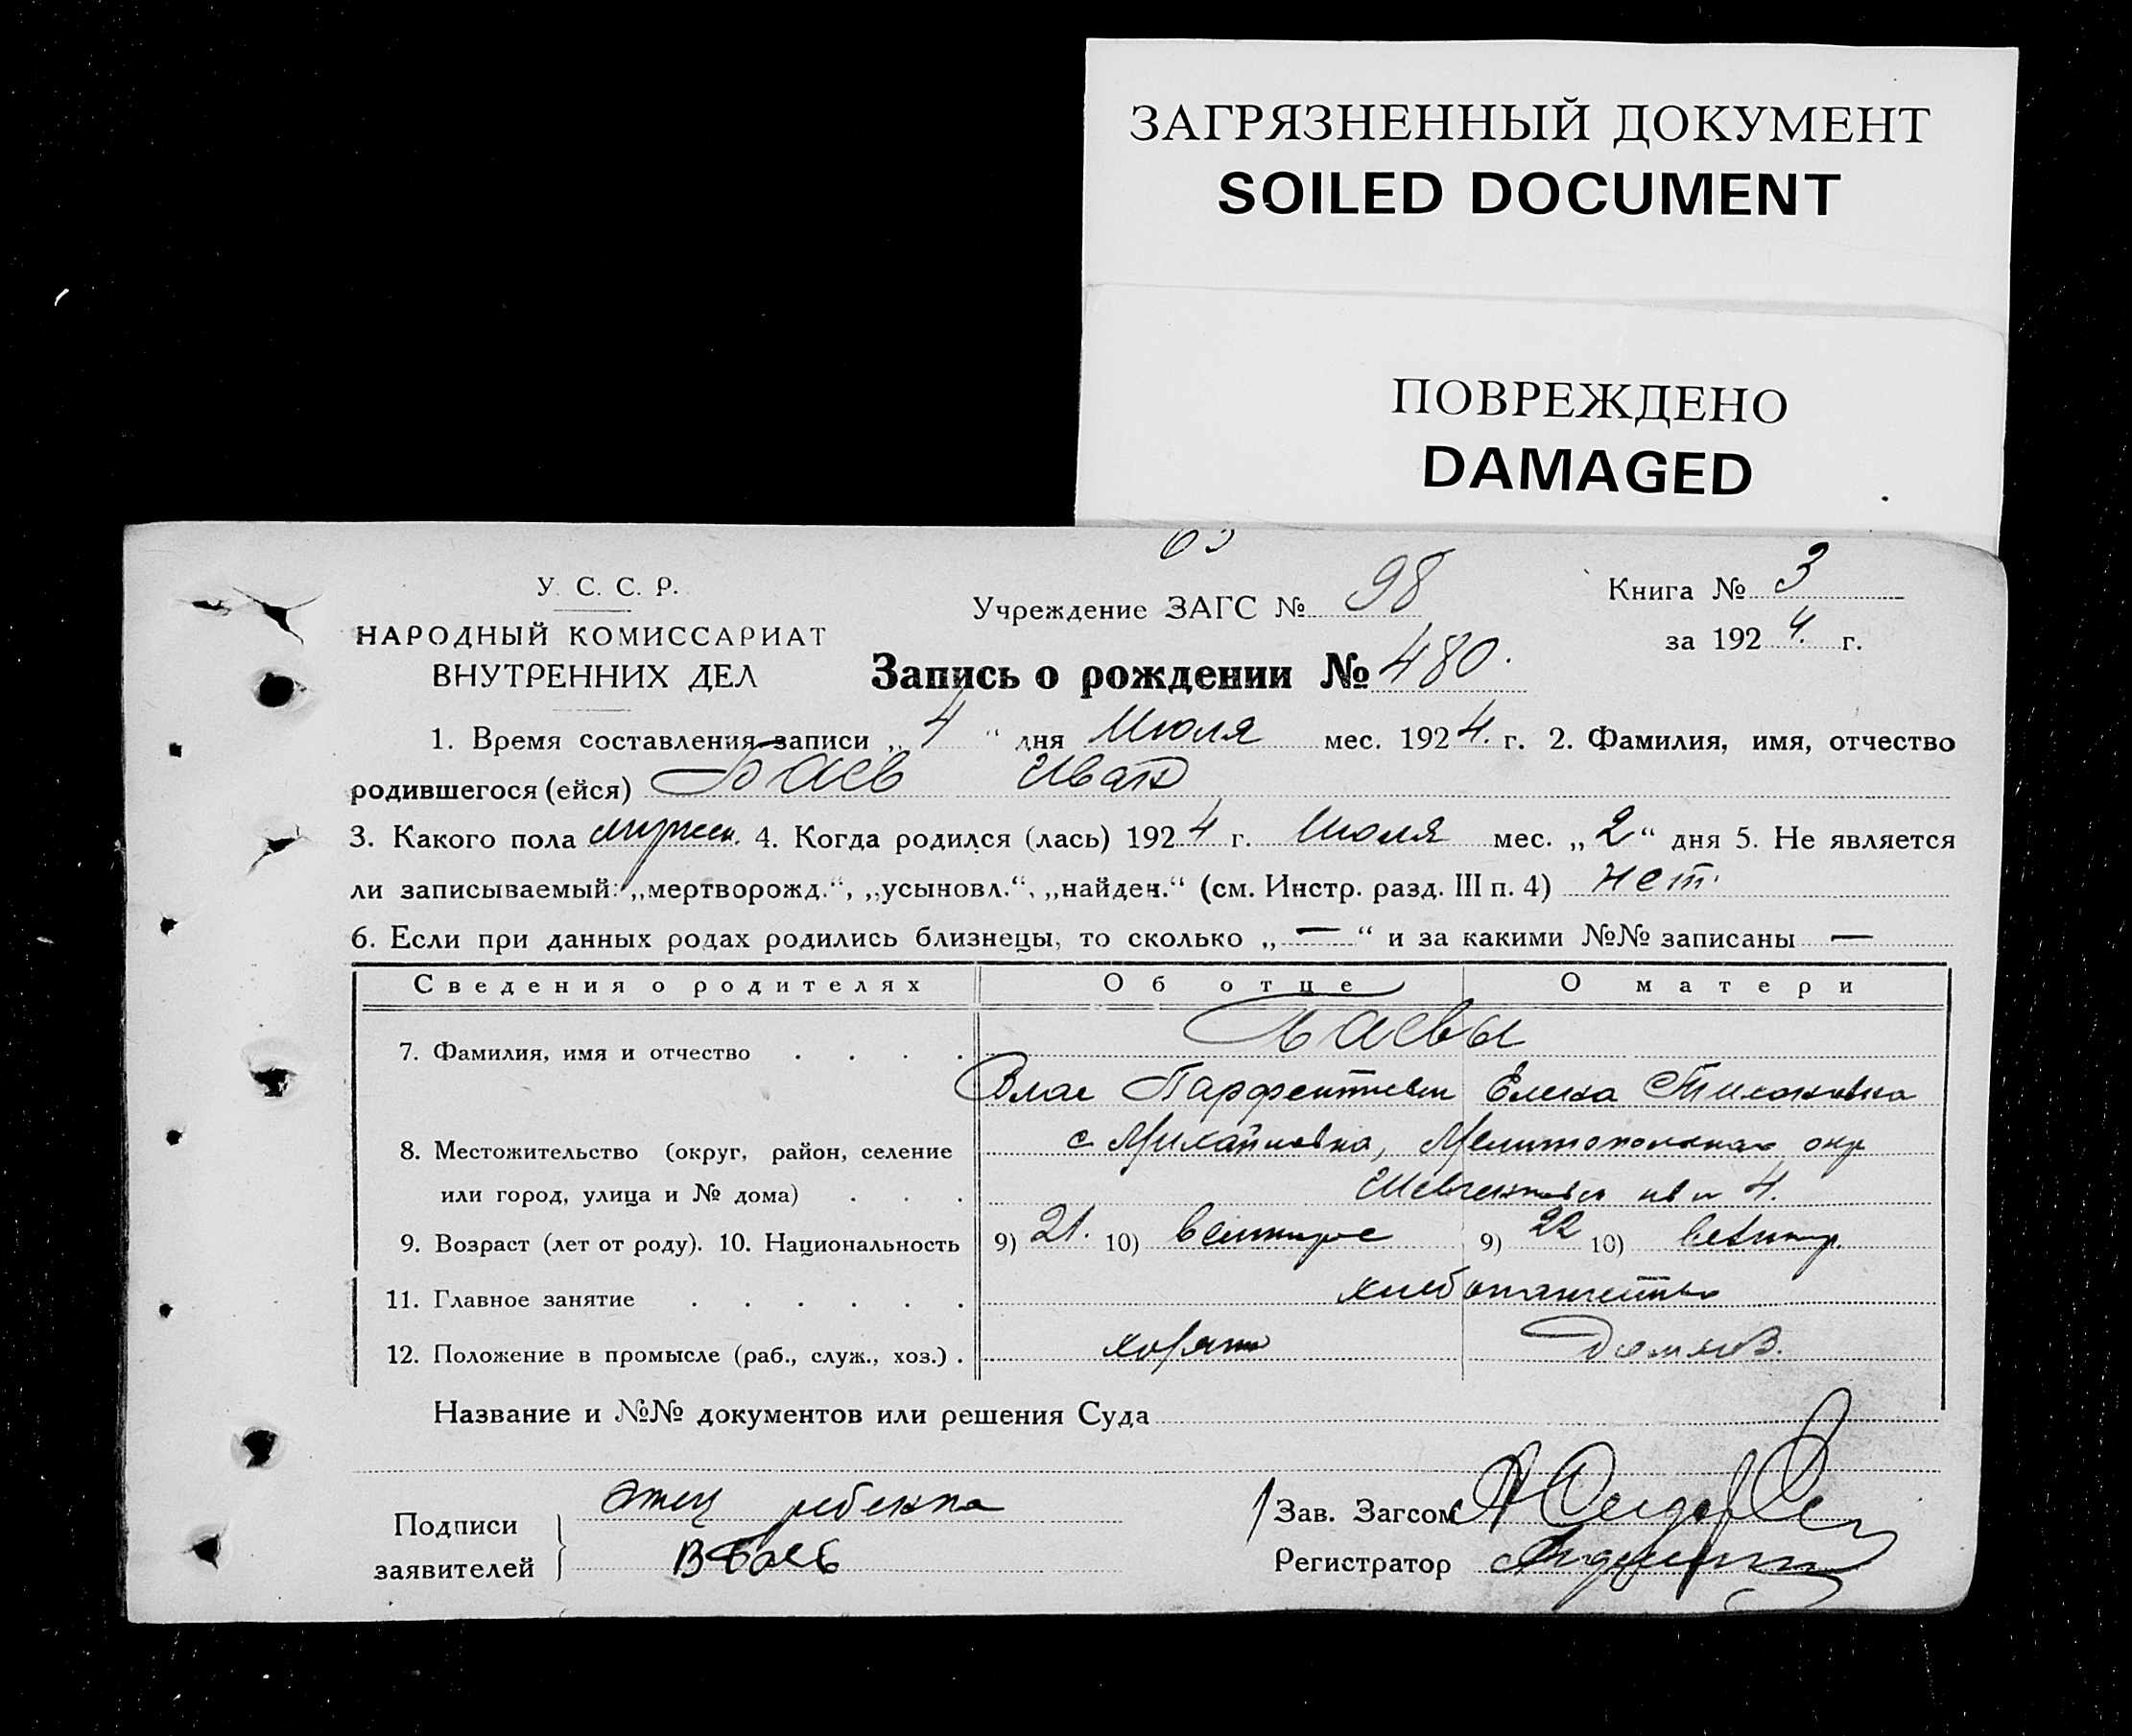 ЗАГРЯЗНЕННЫЙ ДОКУМЕНТ
SOILED DOCUMENT
ПОВРЕЖДЕНО
DAMAGED
У. С. С. Р.
НАРОДНЫЙ КОМИССАРИАТ
ВНУТРЕННИХ ДЕЛ
Учреждение ЗАГС № 98
Книга № 3
за 1924. г.
Запись о рождении № 480.
1. Время составления записи „4“ дня Июля мес. 1924. г. 2. Фамилия, имя, отчество
родившегося (ейся) Баев Иван
3. Какого пола мужск. 4. Когда родился (лась) 1924 г. Июля мес. „2“ дня 5. Не является
ли записываемый: „мертворожд.“, „усыновл.“, „найден.“ (см. Инстр. разд. III п. 4) нет.
6. Если при данных родах родились близнецы, то сколько „—“ и за какими №№ записаны —
Сведения о родителях Об отце О матери
7. Фамилия, имя и отчество . . . . Баевы
Влас Парфентиев Елена Тихоновна
8. Местожительство (округ, район, селение с Михайловка, Мелитопольская окр
или город, улица и № дома) . . . 4.
9. Возраст (лет от роду). 10. Национальность 9) 21. 10) 9) 22 10)
11. Главное занятие . . . . . . хлебопашество
12. Положение в промысле (раб., служ., хоз.) .
Название и №№ документов или решения Суда
Подписи заявителей } отец ребенка
В Баев
Зав. Загсом
Регистратор